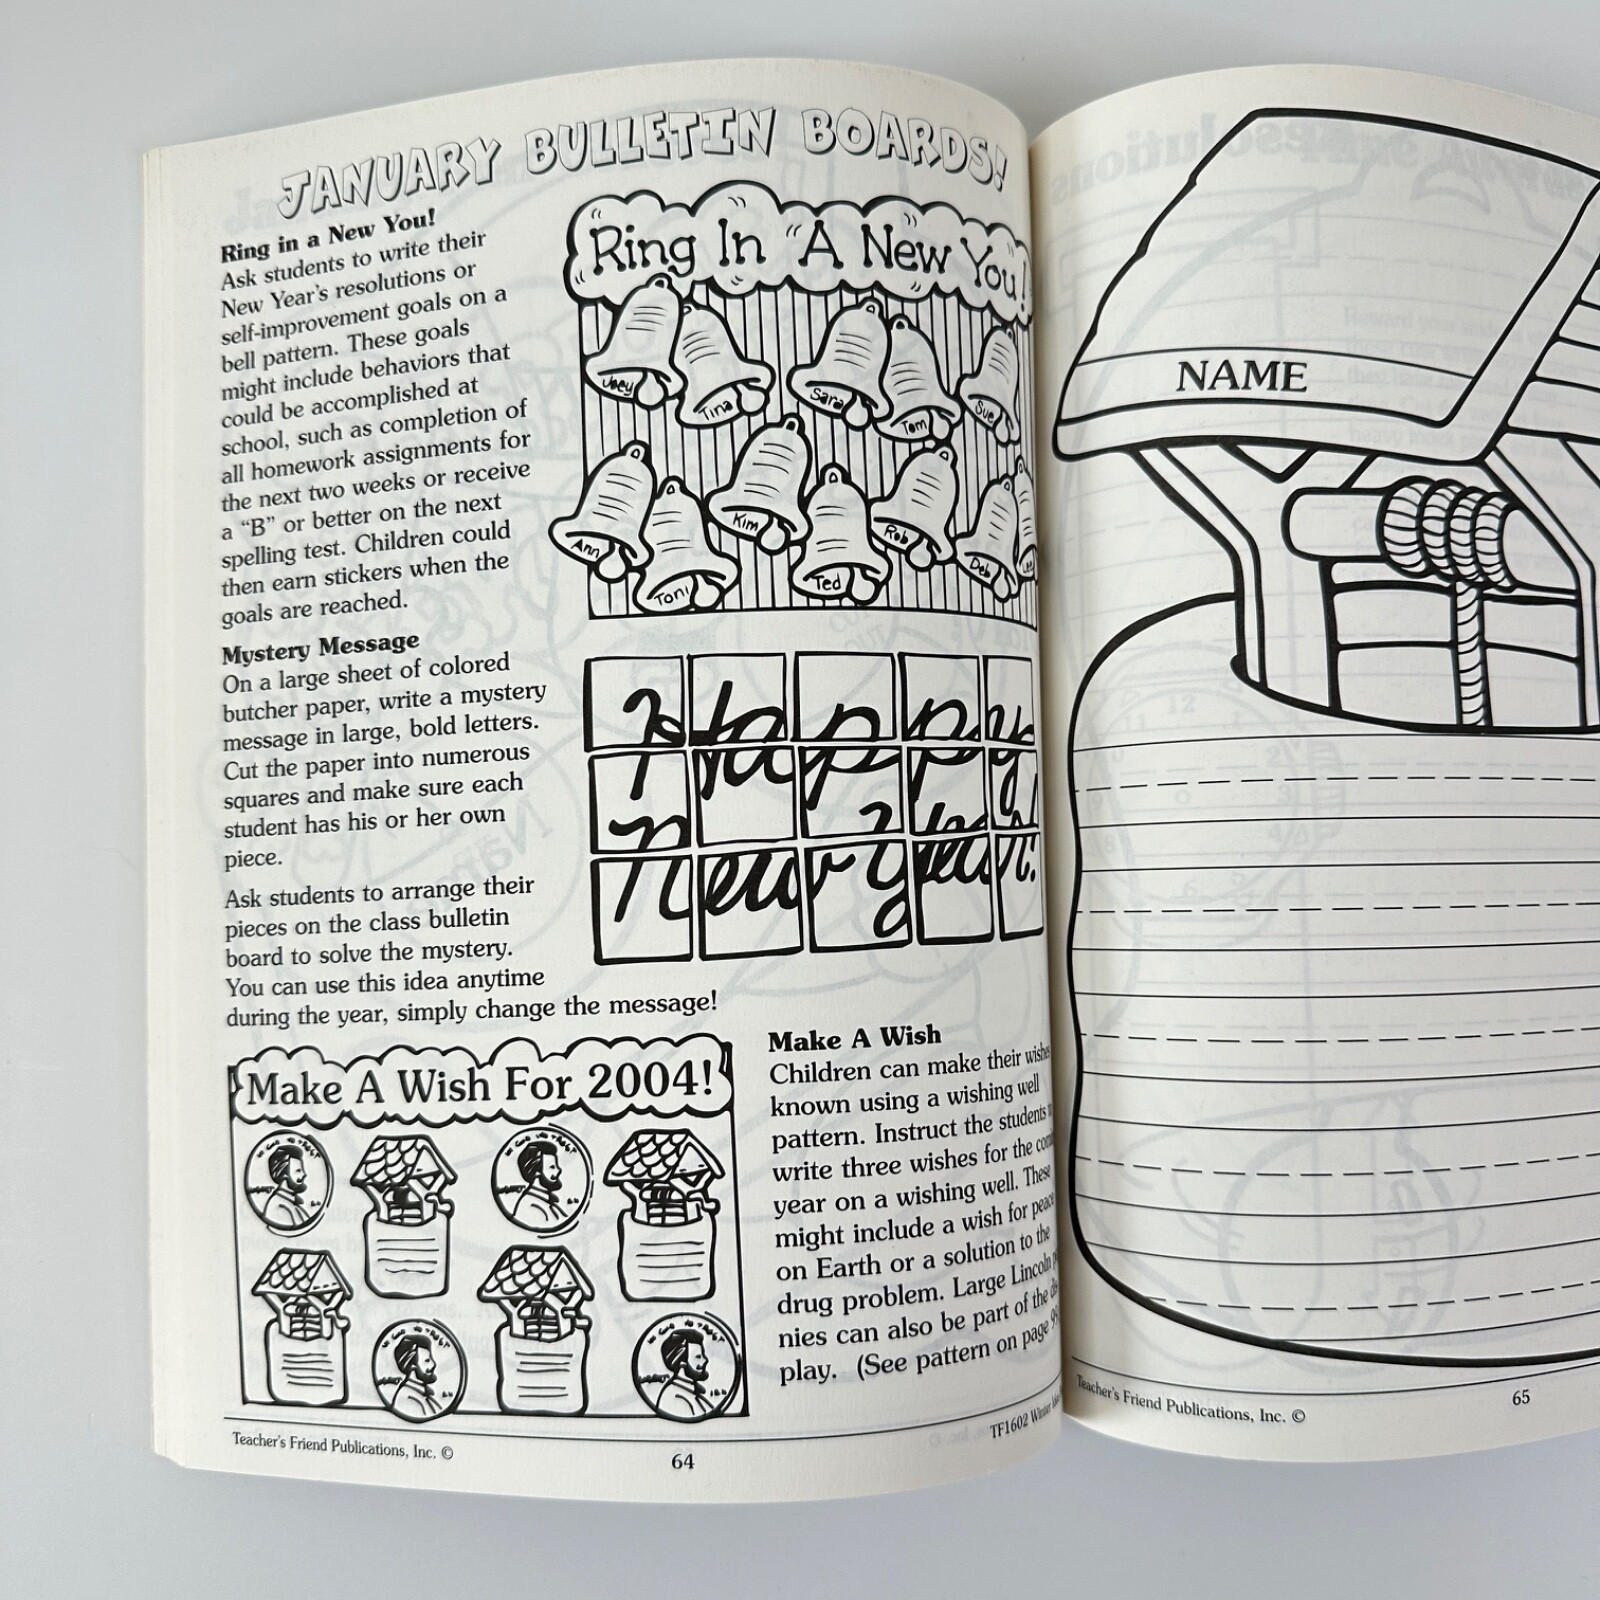 JANUARY BULLETIN BOARDS!
Ring in a New You!
Ask students to write their
New Year's resolutions or
self-improvement goals on a
bell pattern. These goals
might include behaviors that
could be accomplished at
school, such as completion of
all homework assignments for
the next two weeks or receive
a “B” or better on the next
spelling test. Children could
then earn stickers when the
goals are reached.
Ring In "A New You!
Joey
Tina
Sara
Tom
Sue
Ann
Toni
Kim
Ted
Rob
Deb
Mystery Message
On a large sheet of colored
butcher paper, write a mystery
message in large, bold letters.
Cut the paper into numerous
squares and make sure each
student has his or her own
piece.
Ask students to arrange their
pieces on the class bulletin
board to solve the mystery.
You can use this idea anytime
during the year, simply change the message!
Happy
New Year!
Make A Wish For 2004!
Make A Wish
Children can make their wishes
known using a wishing well
pattern. Instruct the students
write three wishes for the
year on a wishing well. These
might include a wish for peace
on Earth or a solution to the
drug problem. Large Lincoln
nies can also be part of the
play. (See pattern on page
Teacher's Friend Publications, Inc. ©
64
TF1602 Winter
NAME
Teacher's Friend Publications, Inc. ©
65